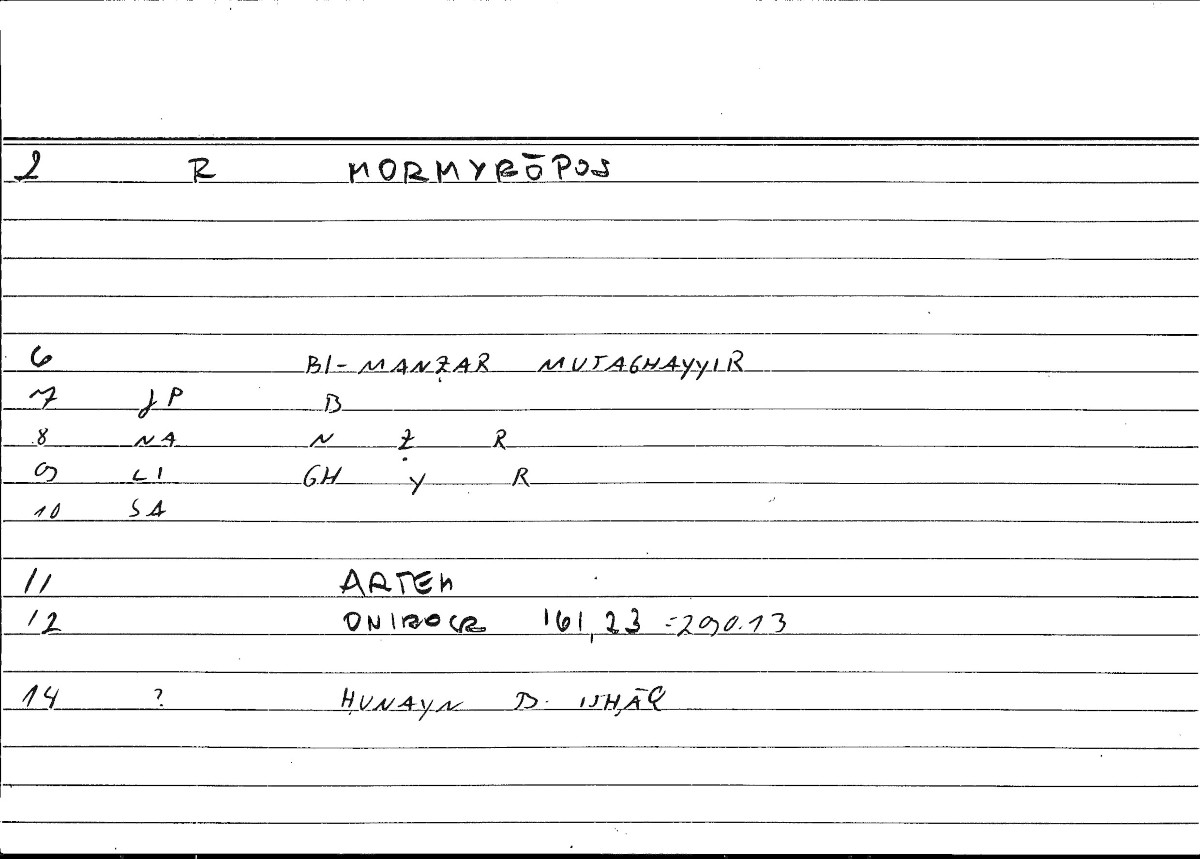 2 R MORMYRŌPOS
6 BI-MANẒAR MUTAGHAYYIR
7 JP B
8 NA N Ẓ R
9 LI GH Y R
10 SA
11 ARTEM
12 ONIROCR 161,23 =290.13
14 ? ḤUNAYN B. ISḤĀQ